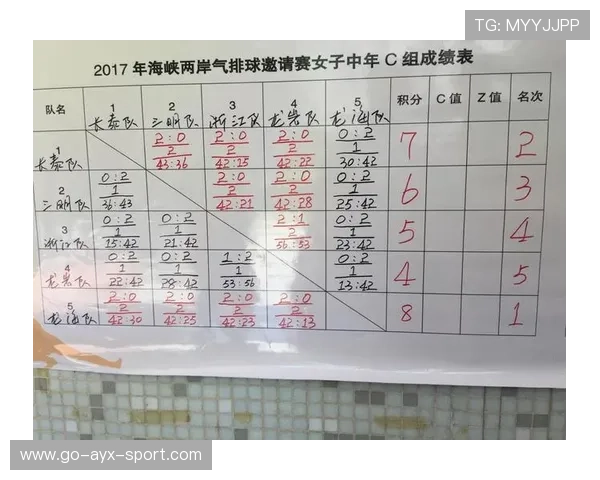 TG: MYYJJPP
2017年海峡两岸气排球邀请赛女子中年C组成绩表
队名 1 长泰队 2 三明队 3 浙江队 4 龙岩队 5 龙海队 积分 C值 Z值 名次
1 长泰队 2:0 2 43:36 2:0 2 42:15 2:0 2 42:22 0:2 1 30:42 7 2
2 三明队 0:2 1 36:43 2:0 2 42:21 2:0 2 42:28 0:2 1 25:42 6 3
3 浙江队 0:2 1 15:42 0:2 1 21:42 2:1 2 56:53 0:2 1 23:42 5 4
4 龙岩队 0:2 1 22:42 0:2 1 28:42 1:2 1 53:56 0:2 1 13:42 4 5
5 龙海队 2:0 2 42:30 2:0 2 42:25 2:0 2 42:23 2:0 2 42:13 8 1
www-go-ayx-sport.com